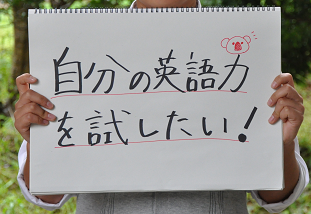 自分の英語力
を試したい!